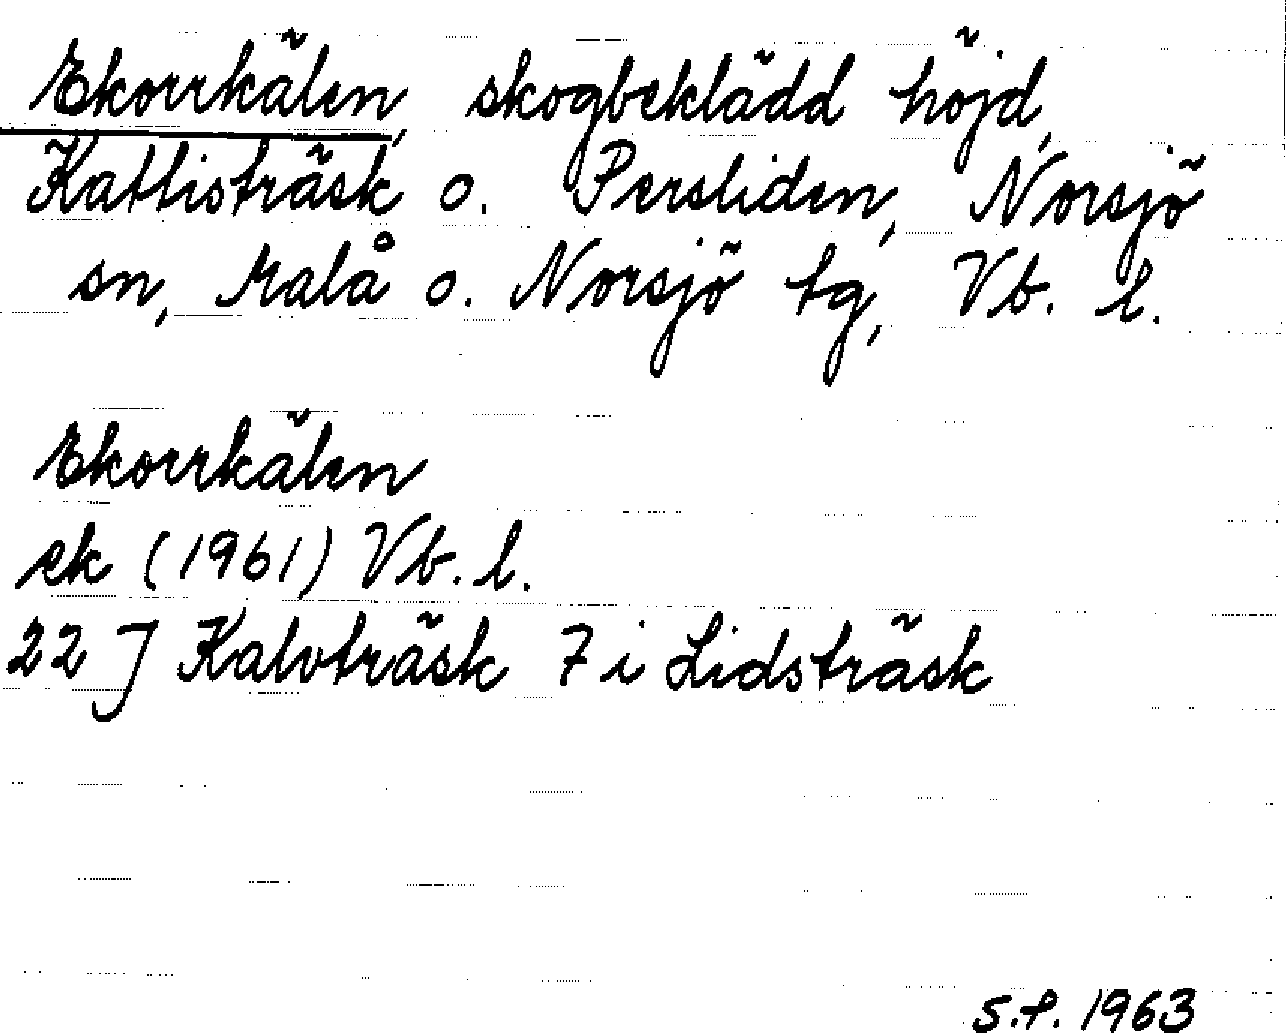 Ekorrkälen, skogbeklädd höjd,
Kattisträsk o. Persliden, Norsjö
sn, Malå o. Norsjö tg, Vb. l.
Ekorrkälen
ek (1961) Vb. l.
22 J Kalvträsk 7 i Lidsträsk
S.P. 1963